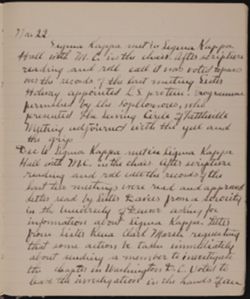 Nov 22
Sigma Kappa met in Sigma Kappa
Hall with M. C. in the chair. After scripture
reading and roll call it was voted to pass
over the records of the last meeting Sister
appointed L.S. protem. Programme
furnished by the Sophomores, who
presented the Sewing Circle of
Meeting adjourned with the yell and
the grip.
Dec 6 Sigma Kappa met in Sigma Kappa
Hall with M.C. in the chair. After scripture
reading and roll call the records of the
last two meetings were read and approved
letter read by Sister from a sorority
in the University of Denver asking for
information about Sigma Kappa. Letter
from Sister Rena Clark Morse requesting
that some action be taken immediately
about sending a member to investigate
the chapter in Washington D.C. Voted to
leave the investigation in the hands of